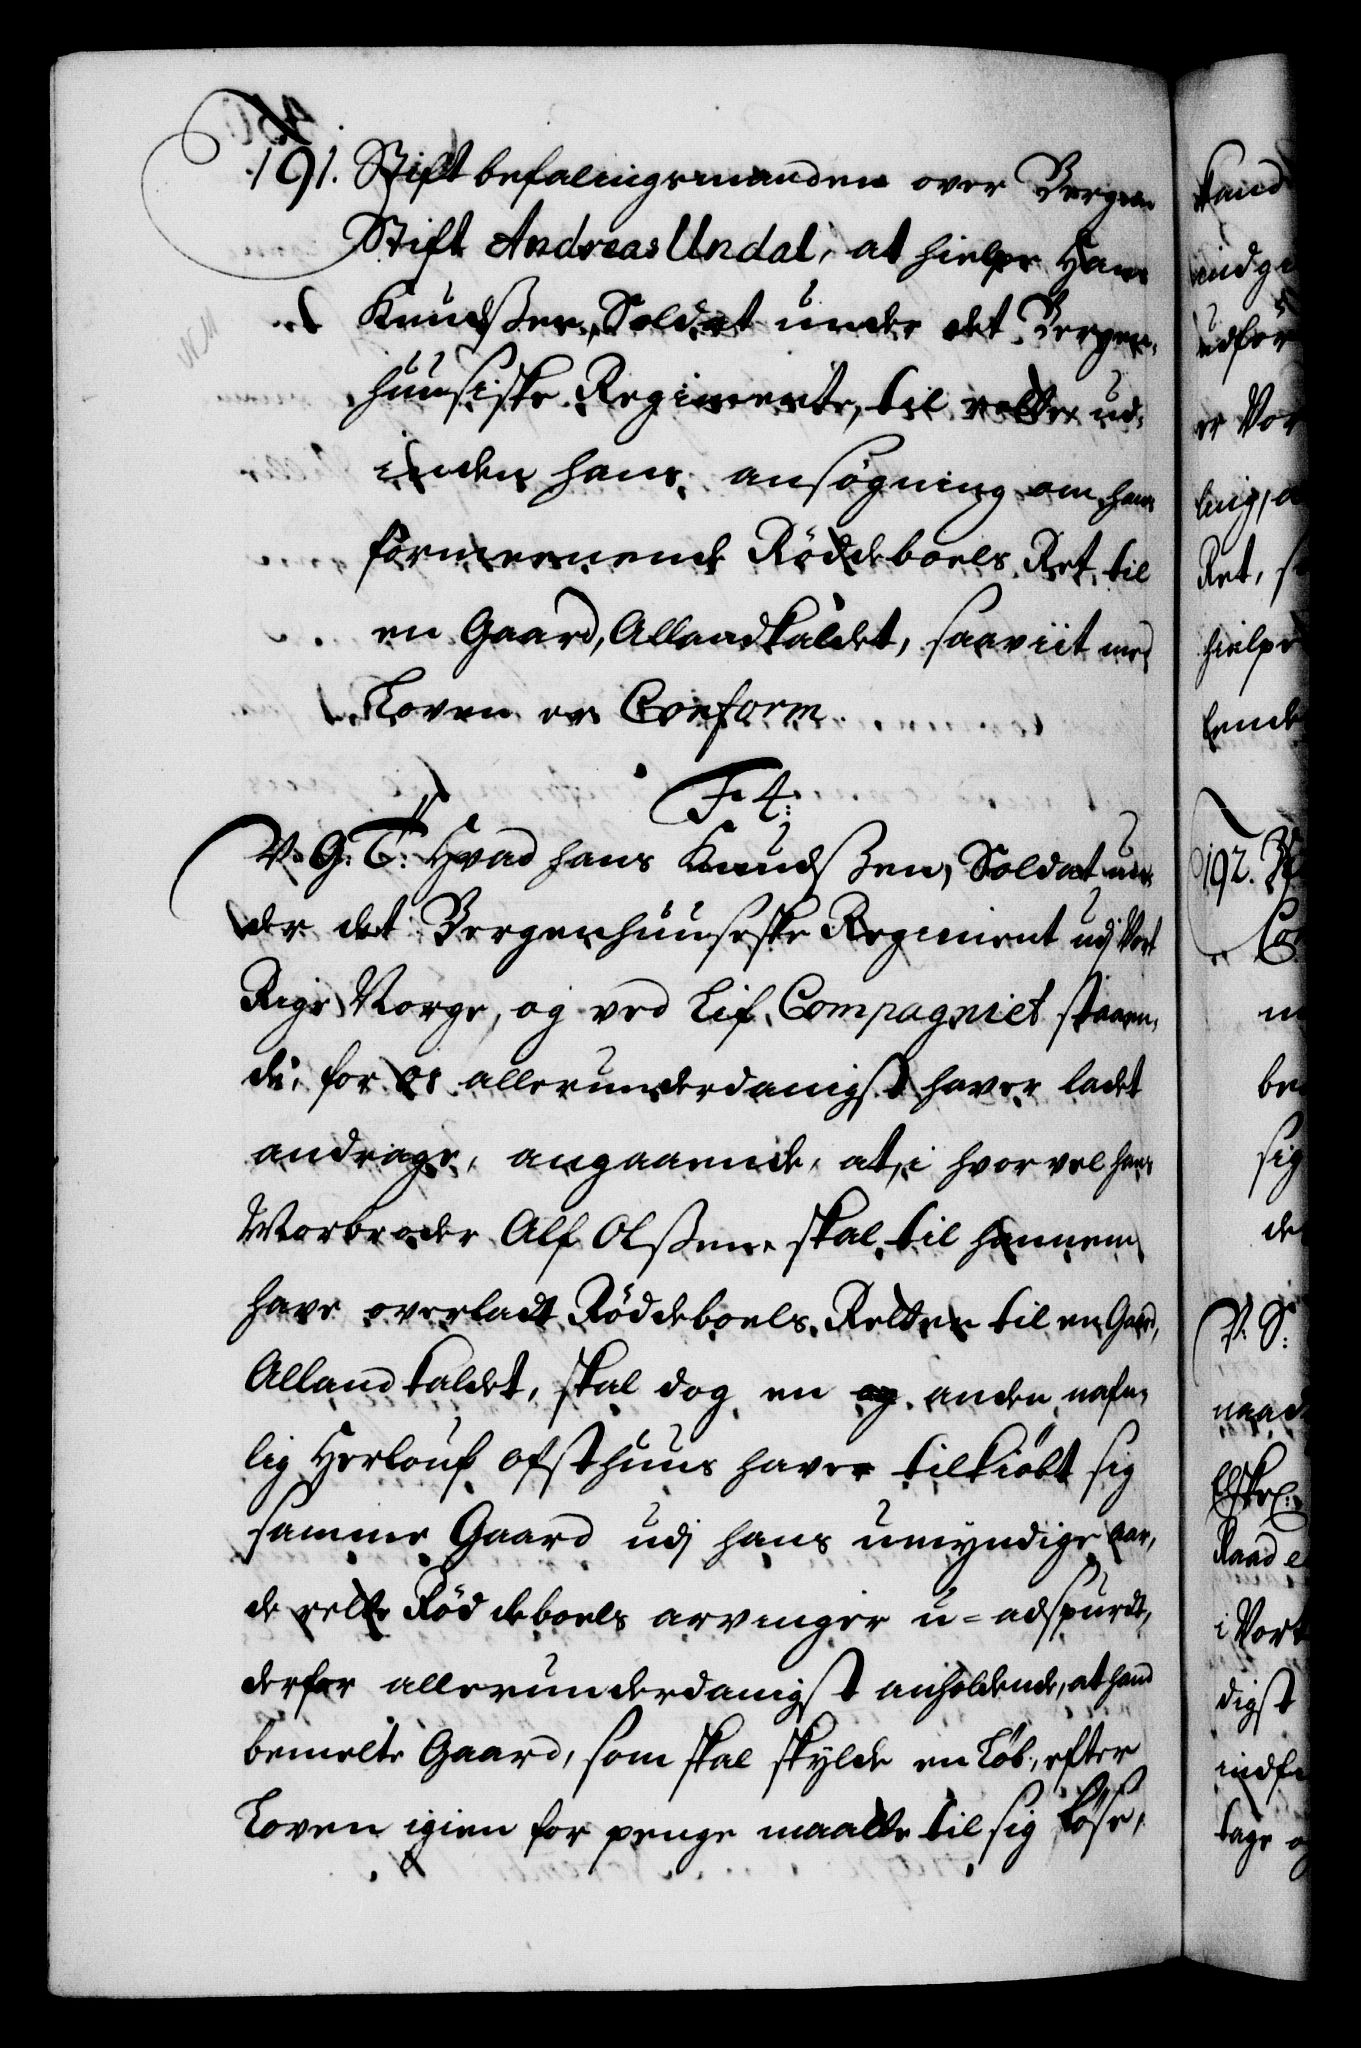 191. Stiftbefalingsmanden over Bergens
Stift Andreas Undal, at hielpe Hans
Knudsßen, Soldat under det Bergen-
huusiske Regimente, til rette ud-
inden hans ansøgning om hans
formeenende Röddeboels Ret til
en Gaard, Alland kaldet, saaviit med
Loven er Conform.
F 4:
V. G. T: Hvad hans Knudsßen, Soldat un-
der det Bergenhuuseske Regiment udj Vort
Rige Norge, og ved Lif Compagniet staaen-
de, for os allerunderdanigst haver ladet
andrage, angaaende, at, i hvorvel hans
Morbroder Alf Olsßen skal til hannem
have overladt Röddeboels Retten til en Gaard,
Alland kaldet, skal dog en anden nafn-
lig Herlouf Ofsthuus haver tilkiöbt sig
samme Gaard udj hans umyndige aar,
de rette Röddeboels arvinger u-adspurdt,
derfor allerunderdanigst anholdende, at hand
bemelte Gaard, som skal skylde en Löb, efter
Loven igien for penge maatte til sig löse,
Ret,
hielpe
192.
V. S:
i Vort
digst
tage